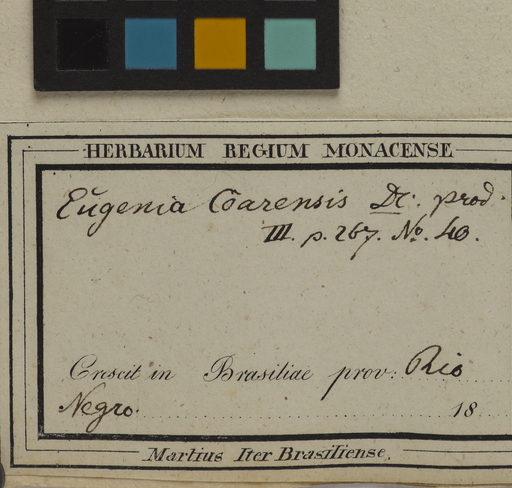 HERBARIUM REGIUM MONACENSE
Eugenia Coarensis DC. prod.
III. p. 267. No. 40.
Crescit in Brasiliae prov: Rio
Negro. 18
Martius Iter Brasiliense.